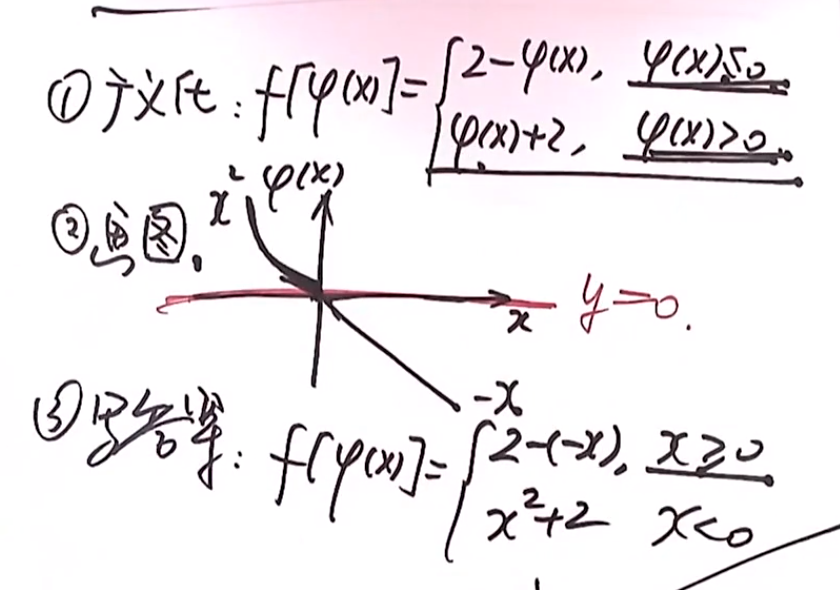 ① 广义代: f[φ(x)]={2-φ(x), φ(x)≤0
φ(x)+2, φ(x)>0.
② 画图.
x² φ(x)
y=0.
x
-x
③ 写答案: f[φ(x)]={2-(-x), x≥0
x²+2 x<0